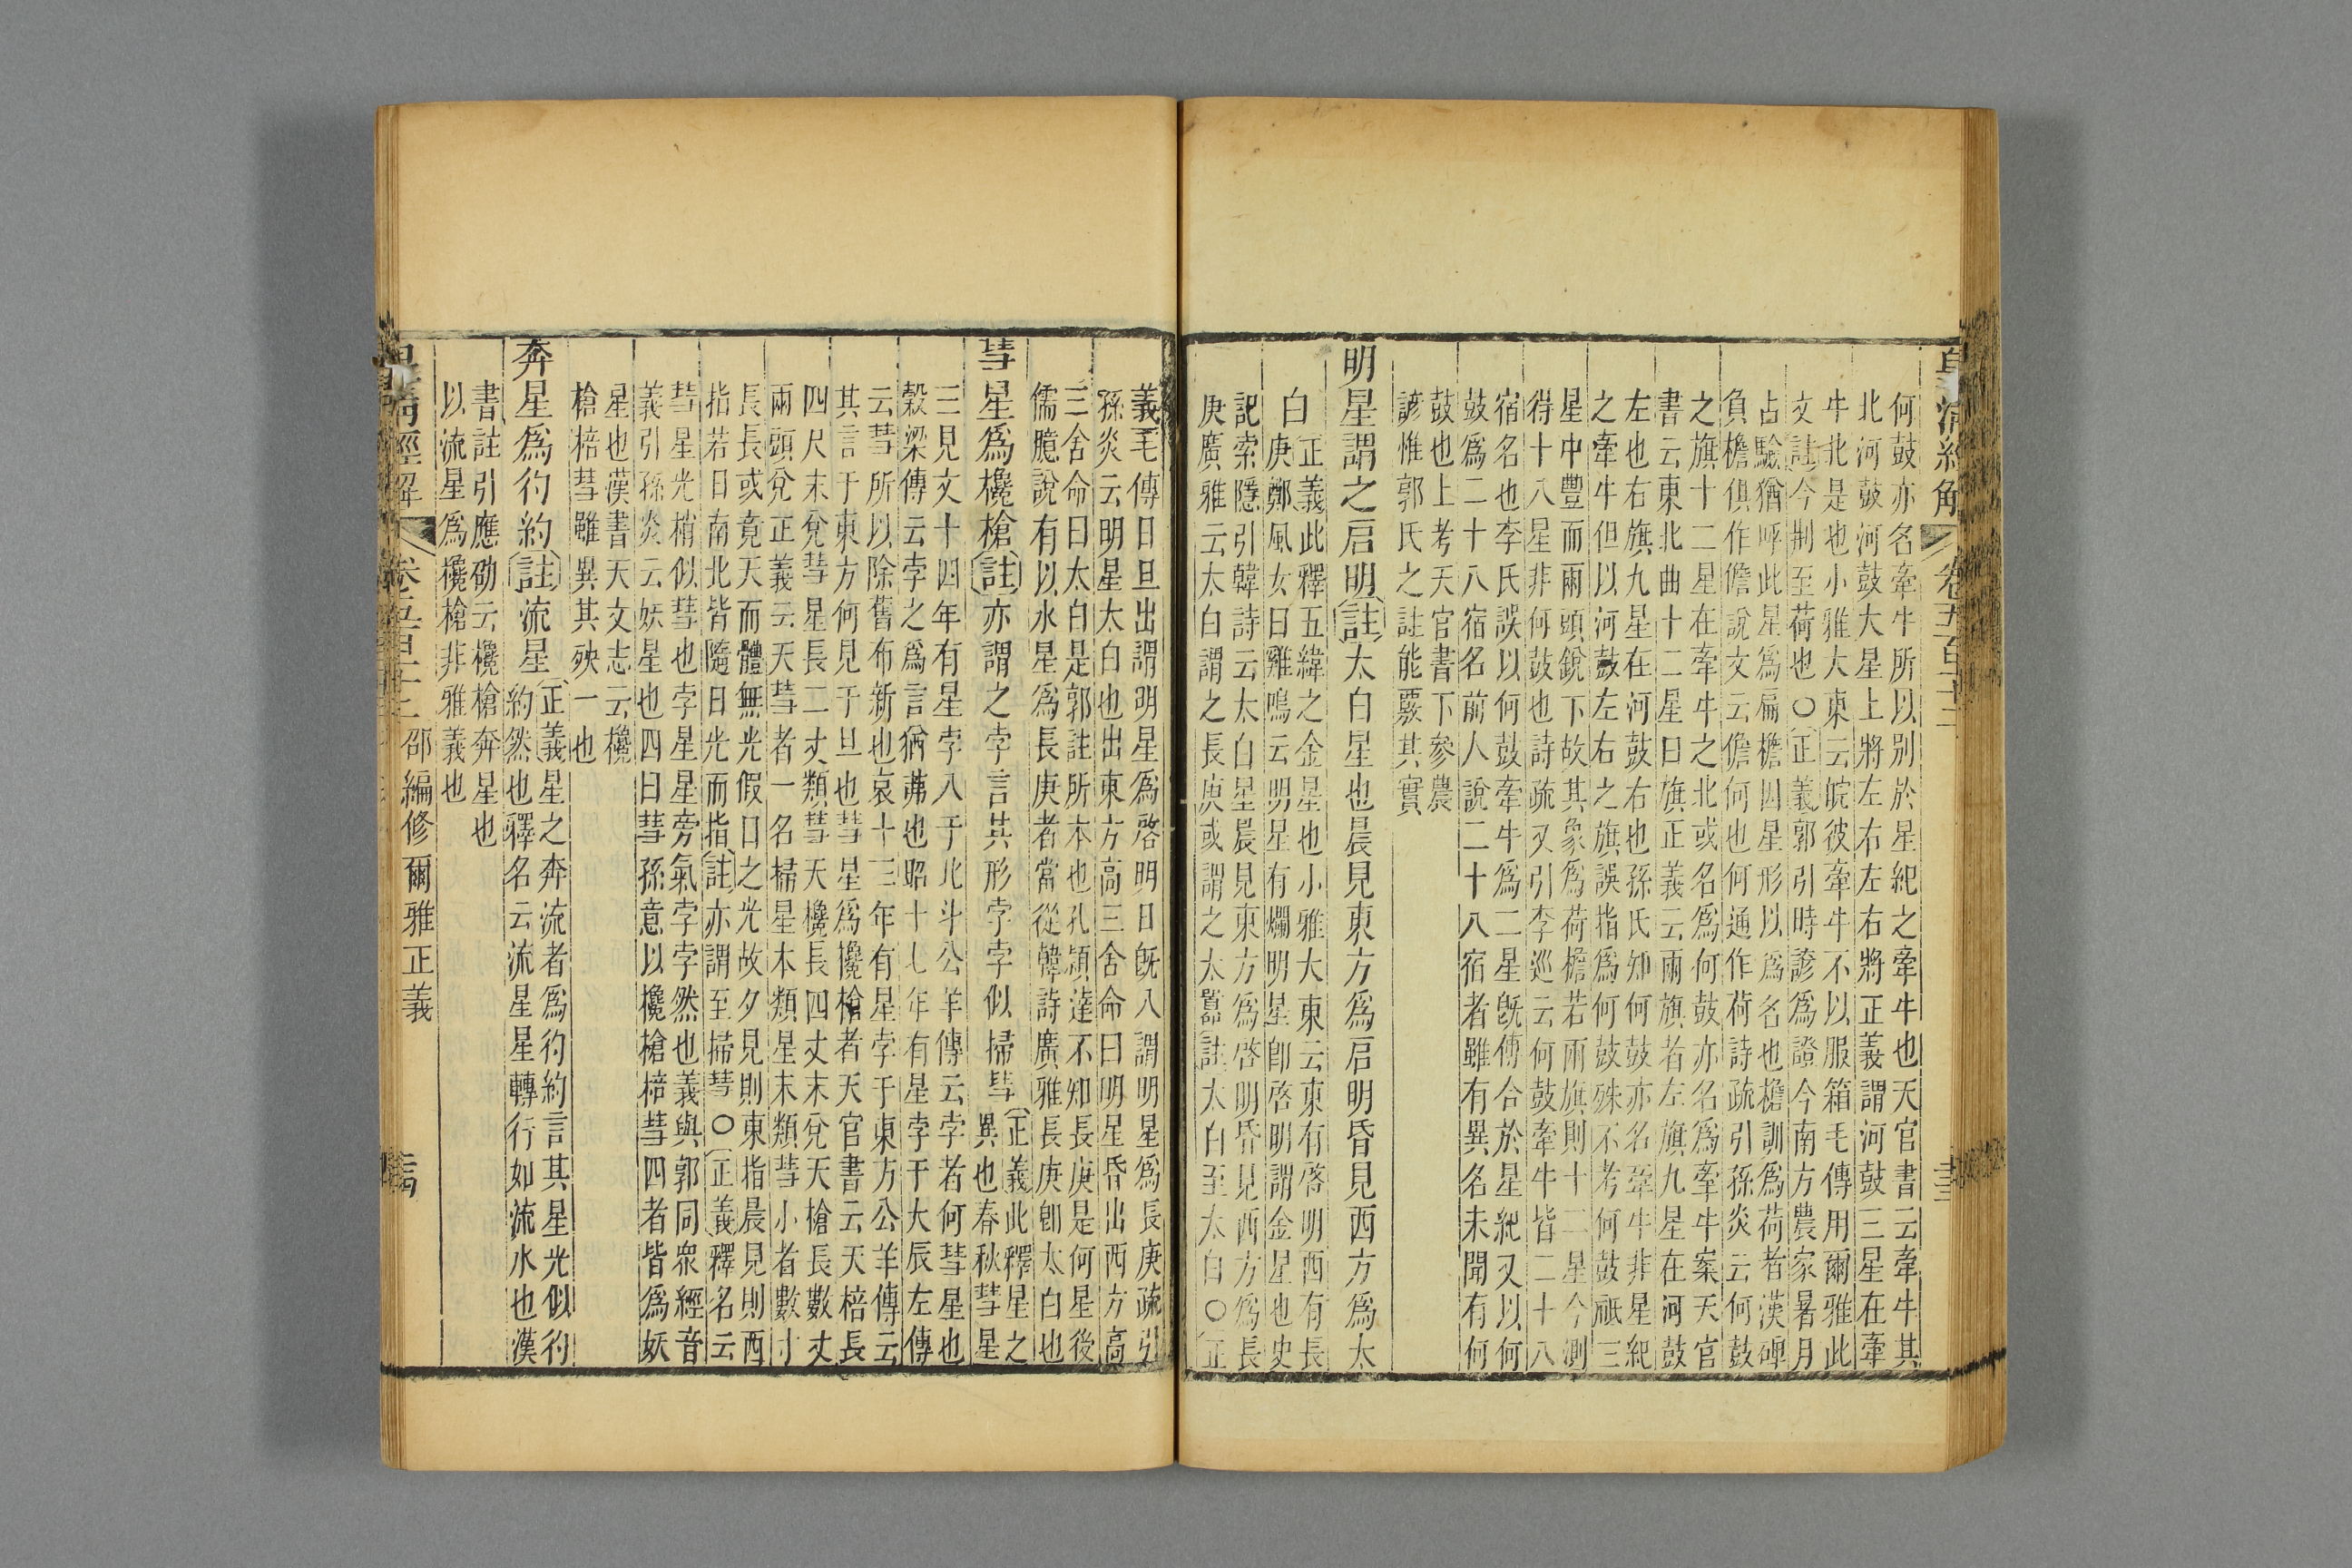 何鼓亦名牽牛所以別於星紀之牽牛也天官書云牽牛其
北河鼓河鼓大星上將左右左右將正義謂河鼓三星在牽
牛北是也小雅大東云皖彼牽牛不以服箱毛傳用爾雅此
文註今荆至荷也○正義郭引時諺爲證今南方農家暑月
占驗猶呼此星爲扁檐因星形以爲名也檐訓爲荷者漢碑
負檐俱作儋說文云儋何也何通作荷詩疏引孫炎云何鼓
之旗十二星在牽牛之北或名爲何鼓亦名爲牽牛案天官
書云東北曲十二星曰旗正義云兩旗者左旗九星在河鼓
左也右旗九星在河鼓右也孫氏知何鼓亦名牽牛非星紀
之牽牛但以河鼓左右之旗誤指爲何鼓殊不考何鼓祗三
星中豐而兩頭銳下故其象爲荷檐若兩旗則十二星今測
得十八星非何鼓也詩疏又引李巡云何鼓牽牛皆二十八
宿名也李氏誤以何鼓牽牛爲二星旣傅合於星紀又以何
鼓爲二十八宿名前人說二十八宿者雖有異名未聞有何
鼓也上考天官書下參農
諺惟郭氏之註能覈其實
明星謂之启明註太白星也晨見東方爲启明昏見西方爲太
白正義此釋五緯之金星也小雅大東云東有啓明西有長
庚鄭風女曰雞鳴云明星有爛明星卽啓明謂金星也史
記索隱引韓詩云太白星晨見東方爲啓明昏見西方爲長
庚廣雅云太白謂之長庚或謂之太嚻註太白至太白○正
義毛傳曰旦出謂明星爲啓明日旣入謂明星爲長庚疏引
孫炎云明星太白也出東方高三舍命曰明星昏出西方高
三舍命曰太白是郭註所本也孔穎達不知長庚是何星後
儒臆說有以水星爲長庚者當從韓詩廣雅長庚卽太白也
彗星爲欃槍註亦謂之孛言其形孛孛似掃彗正義此釋星之
異也春秋彗星
三見文十四年有星孛入于北斗公羊傳云孛者何彗星也
穀梁傳云孛之爲言猶茀也昭十七年有星孛于大辰左傳
云彗所以除舊布新也哀十三年有星孛于東方公羊傳云
其言于東方何見于旦也彗星爲欃槍者天官書云天棓長
四尺末兌彗星長二丈類彗天欃長四丈末兌天槍長數丈
兩頭兌正義云天彗者一名掃星本類星末類彗小者數寸
長長或竟天而體無光假日之光故夕見則東指晨見則西
指若日南北皆隨日光而指註亦謂至掃彗○正義釋名云
彗星光梢似彗也孛星星旁氣孛孛然也義與郭同衆經音
義引孫炎云妖星也四曰彗孫意以欃槍棓彗四者皆爲妖
星也漢書天文志云欃
槍棓彗雖異其殃一也
奔星爲彴約註流星正義星之奔流者爲彴約言其星光似彴
約然也釋名云流星星轉行如流水也漢
書註引應劭云欃槍奔星也
以流星爲欃槍非雅義也
皇淸經解 卷五百十二 邵編修爾雅正義